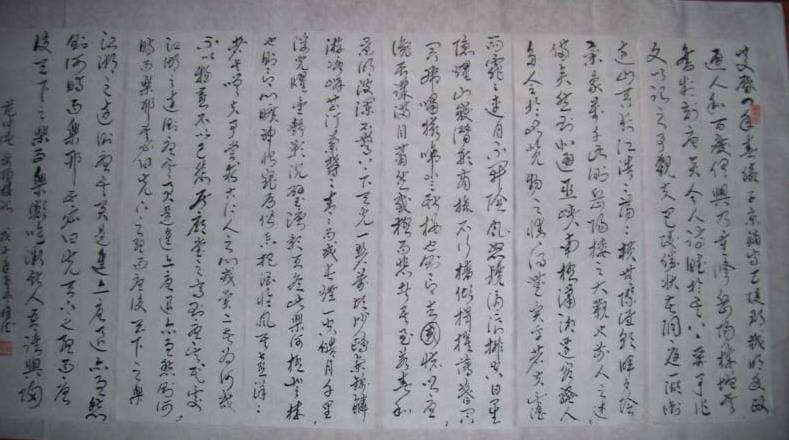 慶曆四年春滕子京謫守巴陵郡越明年政
通人和百廢俱興乃重修岳陽樓增其
舊制刻唐賢今人詩賦於其上屬予作
文以記之予觀夫巴陵勝狀在洞庭一湖銜
遠山吞長江浩浩湯湯橫無際涯朝暉夕陰
氣象萬千此則岳陽樓之大觀也前人之述
備矣然則北通巫峽南極瀟湘遷客騷人
多會於此覽物之情得無異乎若夫霪
雨霏霏連月不開陰風怒號濁浪排空日星
隱曜山岳潛形商旅不行檣傾楫摧薄暮冥
冥虎嘯猿啼登斯樓也則有去國懷鄉憂
讒畏譏滿目蕭然感極而悲者矣至若春和
景明波瀾不驚上下天光一碧萬頃沙鷗翔集錦鱗
游泳岸芷汀蘭鬱鬱青青而或長煙一空皓月千里
浮光躍金靜影沉璧漁歌互答此樂何極登斯樓
也則有心曠神怡寵辱偕忘把酒臨風其喜洋洋
者矣嗟夫予嘗求古仁人之心或異二者之為何哉
不以物喜不以己悲居廟堂之高則憂其民處
江湖之遠則憂其君是進亦憂退亦憂然則何
時而樂耶其必曰先天下之憂而憂後天下之樂
江湖之遠則憂其君是進亦憂退亦憂然
則何時而樂耶其必曰先天下之憂而憂
後天下之樂而樂歟噫微斯人吾誰與歸
范仲淹岳陽樓記